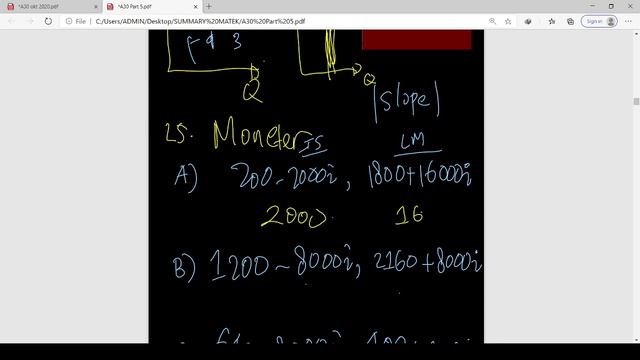 *A30 okt 2020.pdf
*A30 Part 5.pdf
File | C:/Users/ADMIN/Desktop/SUMMARY%20MATEK/A30%20Part%205.pdf
Sign in
3
Q
Q
|Slope|
25. Moneter IS LM
A) 200 - 2000i, 1800+16000i
2000 16
B) 1200 - 8000i, 2160+8000i